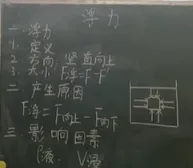 浮力
一. 浮力
1. 定义
2. 方向: 竖直向上
3. 大小: F浮=F-F'
二. 产生原因
F浮=F向上-F向下
三. 影响因素
ρ液. V浸